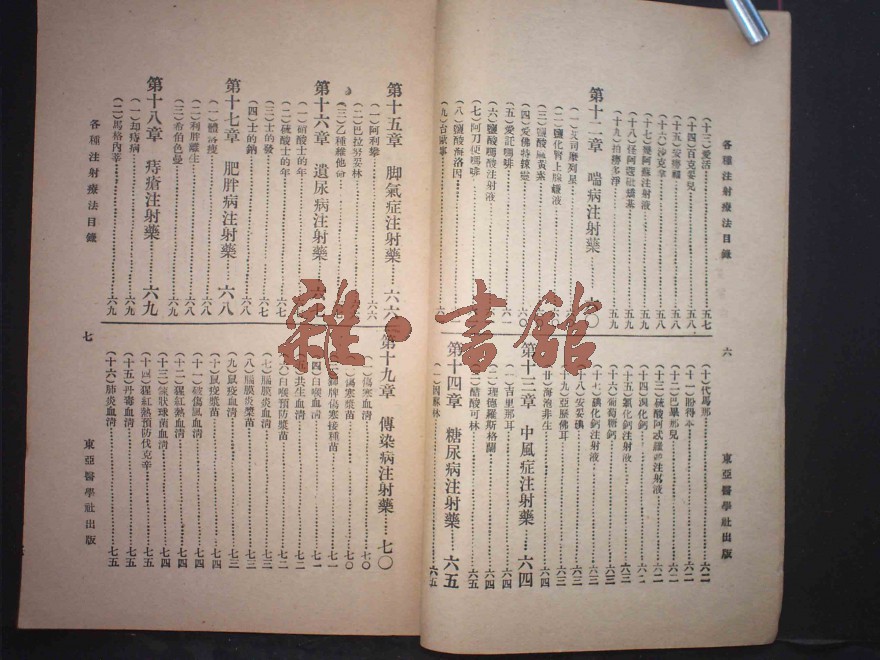 各種注射療法目錄
六
東亞醫學社出版
(十三)愛活……五七
(十四)百克妥兒……五八
(十五)安嗽
(十六)沙克拿……五八
(十七)樂阿蘇注射液……五九
(十九)拍嗽多淨……五九
第十二章 喘病注射藥……六〇
(二)鹽化腎上腺
(三)鹽酸麻黃素
(四)愛佛特
(五)愛託嗎啡
(六)鹽酸嗎啡注射液
(七)阿刀便嗎啡
(八)鹽酸海洛因
(十)代馬那……六二
(十一)
(十二)巴畢那兒……六二
(十三)硫酸阿忒羅品注射液……六二
(十四)溴化鈣……六二
(十五)氯化鈣注射液……六三
(十六)葡萄糖鈣……六三
(十七)碘化鈣注射液……六三
(十八)安妥碘……六三
(十九)亞歷佛耳……六三
(廿)海泡非生……六四
第十三章 中風症注射藥……六四
(一)吉里那耳……六四
(二)理德羅斯格蘭……六四
(三)醋酸可林……六五
第十四章 糖尿病注射藥……六五
(一)因蘇林……六五
第十五章 脚氣症注射藥……六六
(一)阿利攀……六六
(二)巴拉努妥林
(三)乙種維他命
第十六章 遺尿病注射藥
(一)硝酸士的年
(二)硫酸士的年……六七
(三)士的發……六七
(四)士的鈉……六八
第十七章 肥胖病注射藥……六八
(二)利胖離生……六八
(三)希伯色曼……六九
第十八章 痔瘡注射藥……六九
(一)却痔病……六九
(二)馬格內莘……六九
各種注射療法目錄
七
東亞醫學社出版
第十九章 傳染病注射藥……七〇
(一)傷寒血清……七〇
傷寒漿苗……七〇
傷寒接種苗……七一
(四)白喉血清……七一
共生血清……七二
(六)白喉預防漿苗……七二
(七)腦膜炎血清……七三
(八)腦膜炎漿苗……七三
(九)鼠疫血清……七三
(十)鼠疫漿苗……七四
(十一)破傷風血清……七四
(十二)猩紅熱血清……七四
(十三)鍊狀球菌血清……七四
(十四)猩紅熱預防伐克辛……七五
(十五)丹毒血清……七五
(十六)肺炎血清……七五
雜·書館